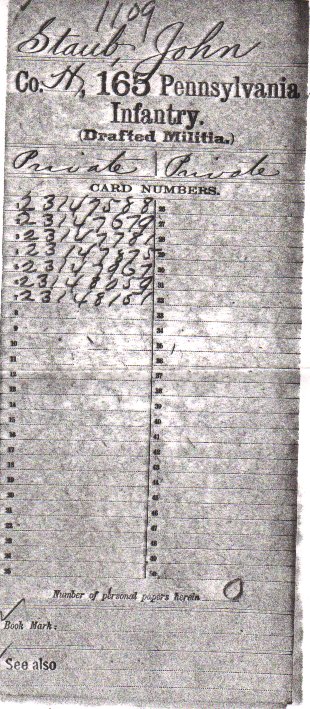 1109
Staub, John
Co. H, 165 Pennsylvania
Infantry.
(Drafted Militia.)
Private | Private
CARD NUMBERS.
1 23147588 26
2 23147679 27
3 23147781 28
4 23147875 29
5 23147967 30
6 23148259 31
7 23148161 32
8 33
9 34
10 35
11 36
12 37
13 38
14 39
15 40
16 41
17 42
18 43
19 44
20 45
21 46
22 47
23 48
24 49
25 50
Number of personal papers herein 0
Book Mark:
See also